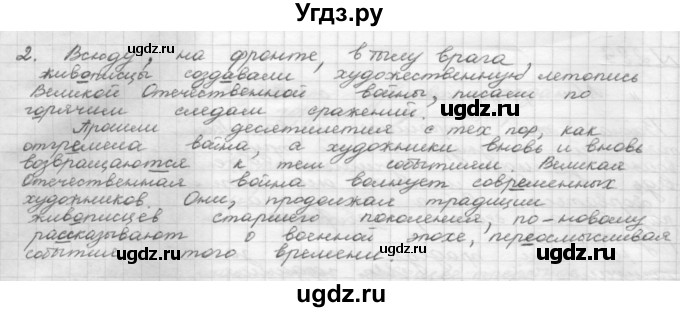 Угдз.ру
2. Всюду, на фронте, в тылу врага,
живописцы создавали художественную летопись
Великой Отечественной войны, писали по
горячим следам сражений. gdz.ru
Прошли десятилетия с тех пор, как
отгремела война, а художники вновь и вновь
возвращаются к тем событиям. Великая
Отечественная война волнует современных
художников. Они, продолжая традиции
живописцев старшего поколения, по-новому
рассказывают о военной эпохе, переосмысливая
события того времени.
ugdz.ru
ugdz.ru
ugdz.ru
ugdz.ru
ugdz.ru
ugdz.ru